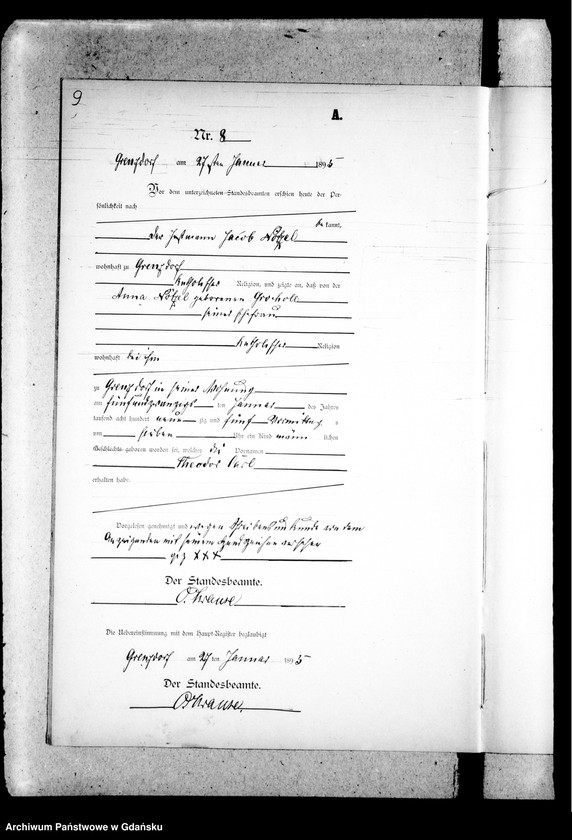 9
A.
Nr. 8
Grenzdorf am 27sten Januar 1895
Vor dem unterzeichneten Standesbeamten erschien heute der Per-
sönlichkeit nach
be kannt,
der Jacob Nötzel
wohnhaft zu Grenzdorf
katholischer Religion, und zeigte an, daß von der
Anna Nötzel geborenen
seiner Ehefrau
katholischer Religion
wohnhaft bei ihm
zu Grenzdorf in seiner Wohnung
am fünfundzwanzigsten ten Januar des Jahres
tausend acht hundert neun zig und fünf Vormittags
um sieben Uhr ein Kind männ lichen
Geschlechts geboren worden sei, welches die Vornamen
Theodor Carl
erhalten habe.
Vorgelesen, genehmigt und wegen Schreibensunkunde von dem
Anzeigenden mit seinem Handzeichen versehen
gez XXX
Der Standesbeamte.
O. Krause
Die Uebereinstimmung mit dem Haupt-Register beglaubigt
Grenzdorf am 27 ten Januar 1895
Der Standesbeamte.
O. Krause
Archiwum Państwowe w Gdańsku